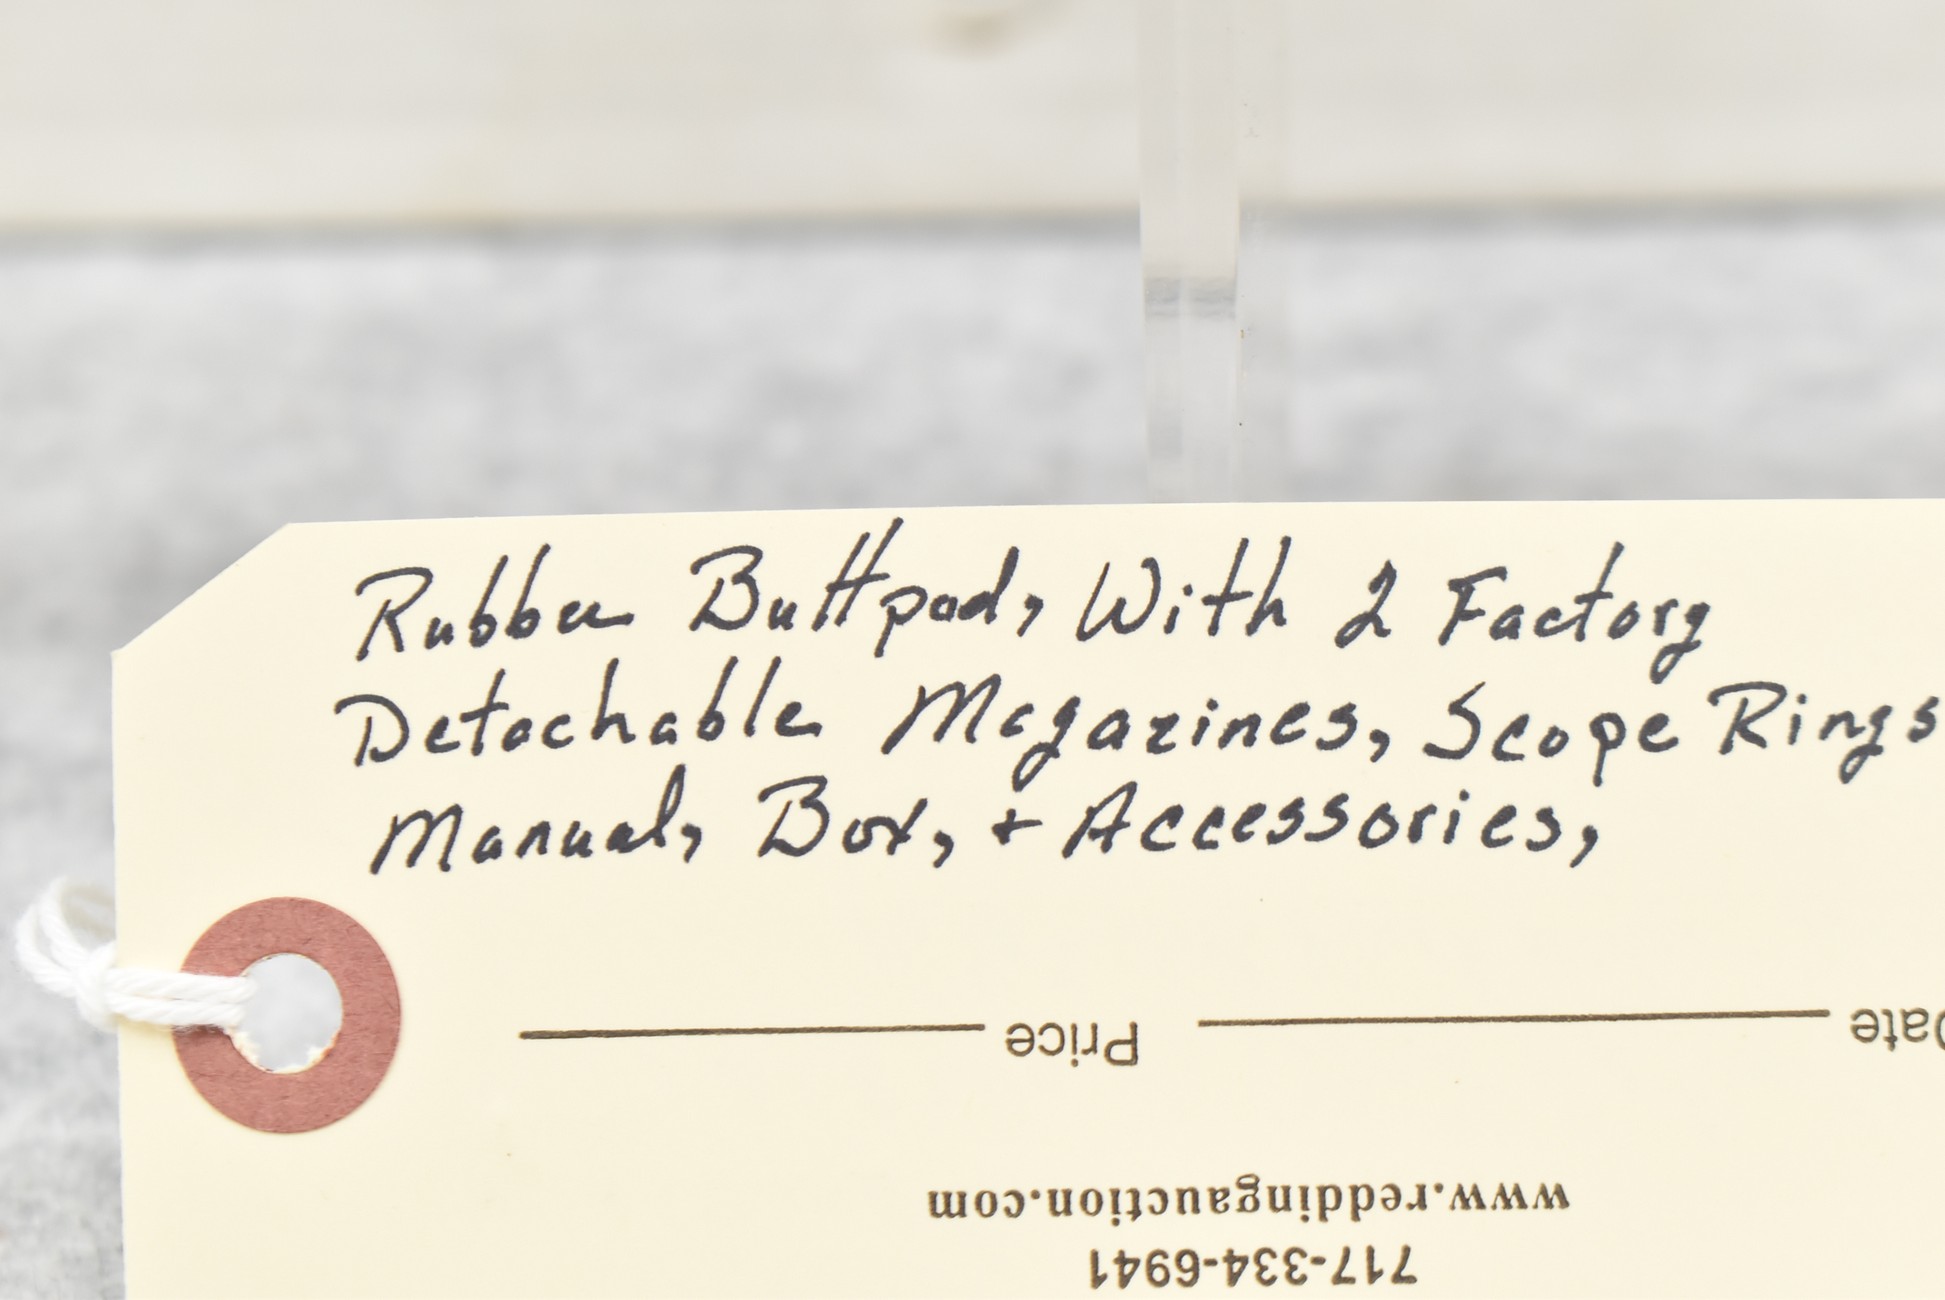 Rubber Buttpad, With 2 Factory
Detachable Magazines, Scope Rings
Manual, Box, + Accessories,
Price
Date
www.reddingauction.com
717-334-6941